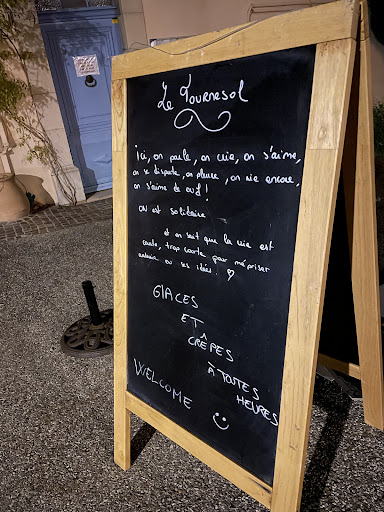 Le Tournesol
Ici, on parle, on crie, on s'aime,
on se dispute, on pleure, on rie encore,
on s'aime de
on est solitaire
et on sait que la vie est
courte, trop courte pour mépriser
autrui ou ses idées. ♡
GLACES
ET
CRÊPES
À TOUTES
HEURES
WELCOME